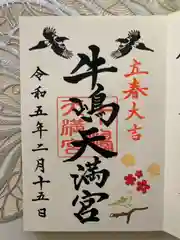 立春大吉
牛嶋天満宮
令和五年二月十五日